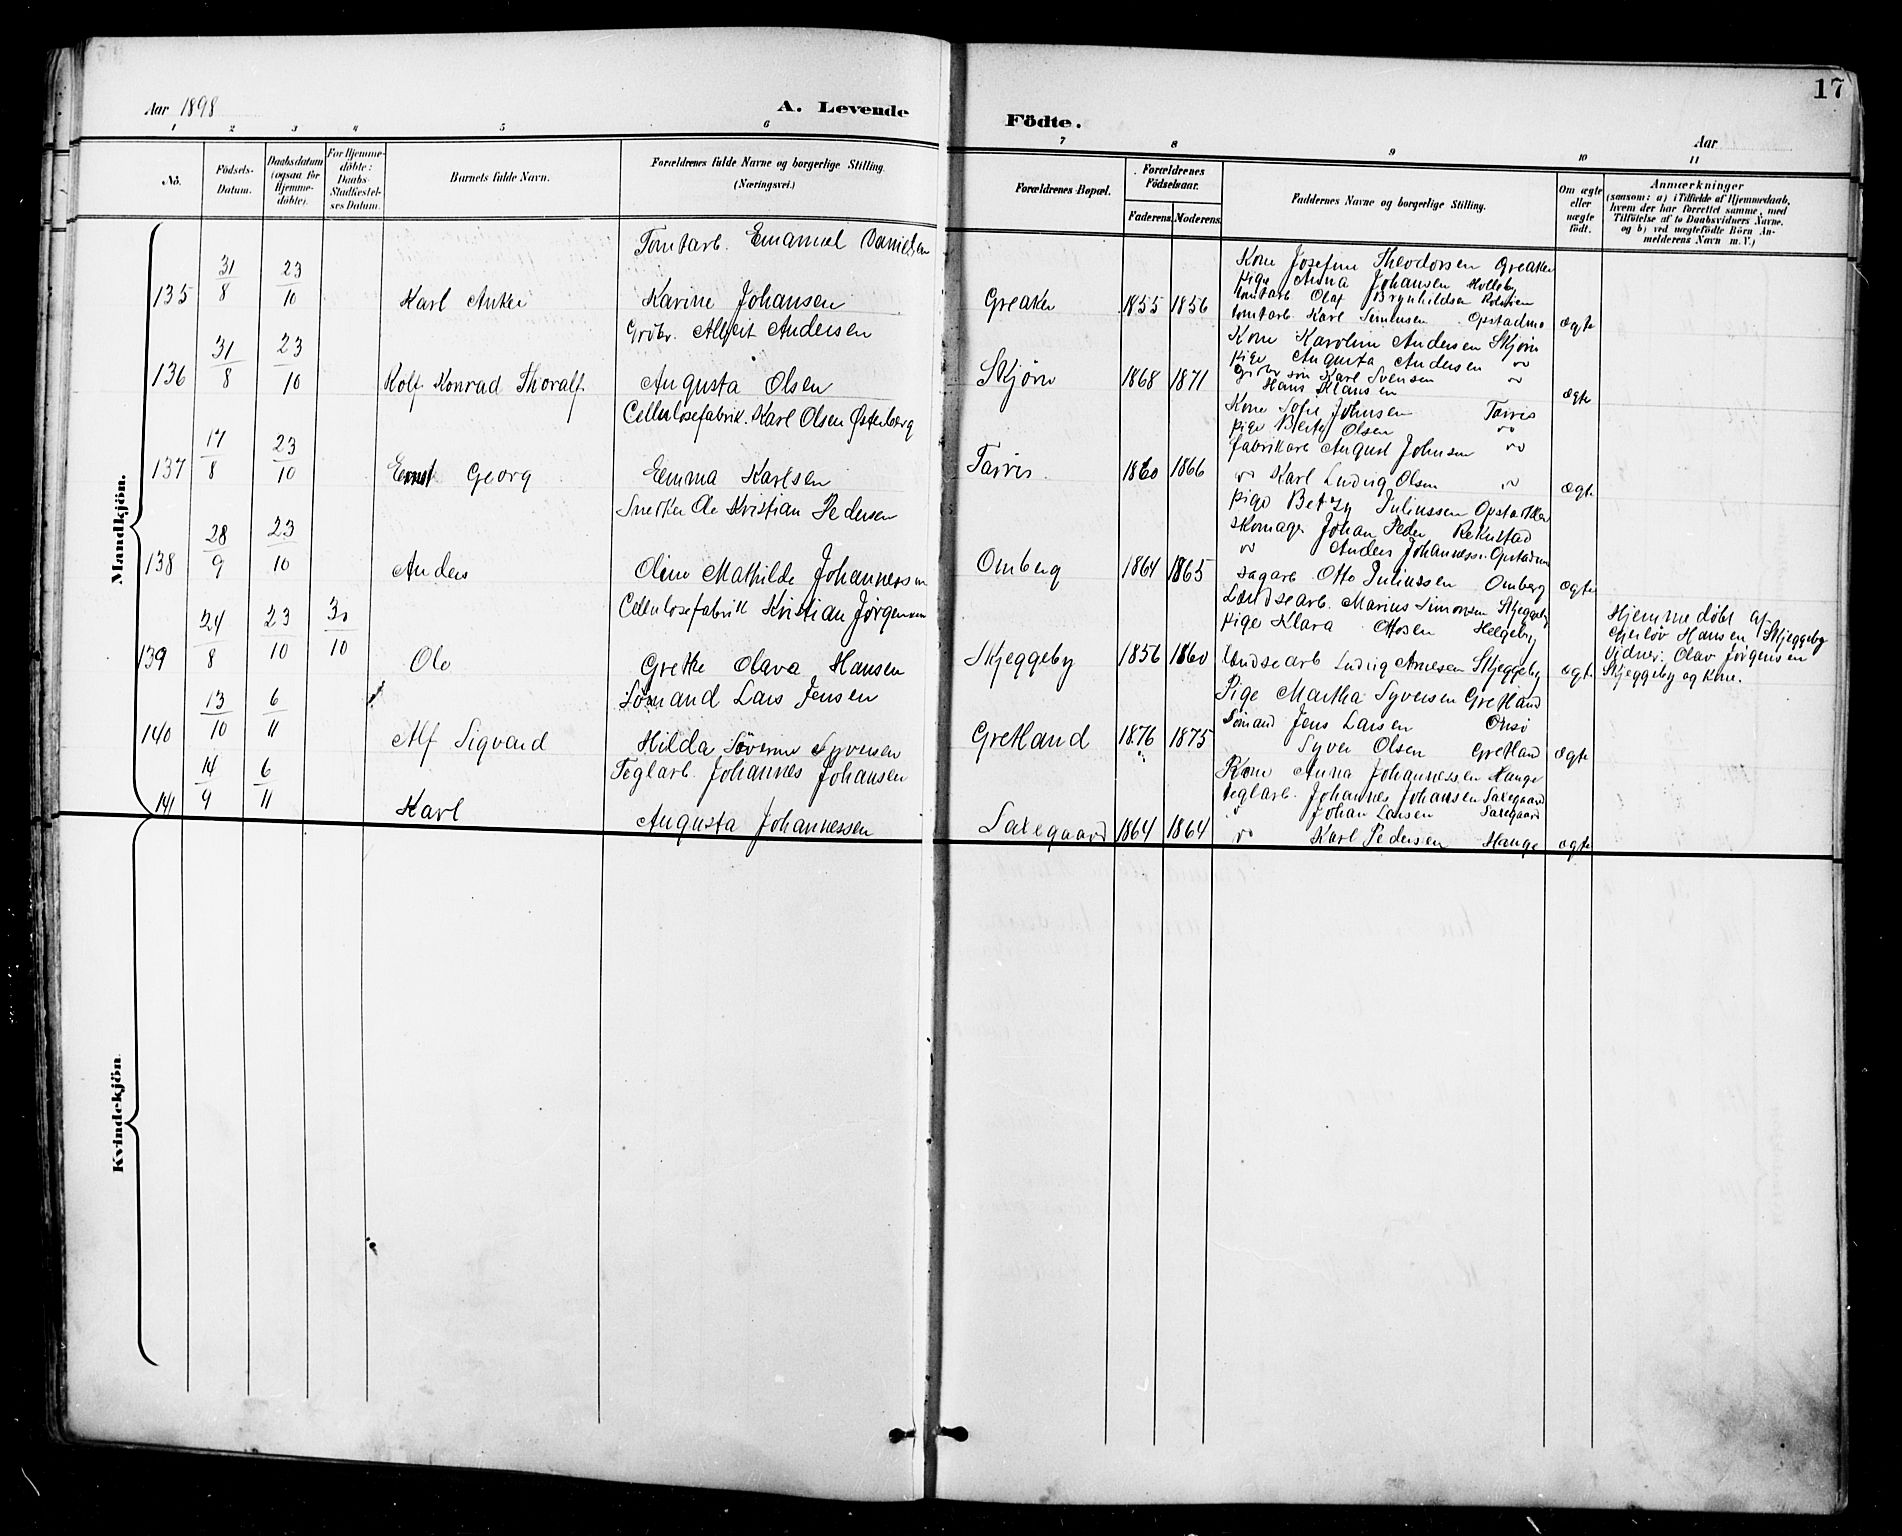 17
Aar 1898
A. Levende
Födte.
Aar
1 2 3 4 5 6 7 8 9 10 11
No.
Födsels-
Datum.
Daabsdatum
(ogsaa for
Hjemme-
döbte).
For Hjemme-
döbte:
Daabs-
Stadfæstel-
ses Datum.
Barnets fulde Navn.
Forældrenes fulde Navne og borgerlige Stilling.
(Næringsvei.)
Forældrenes Bopæl.
Forældrenes
Födselsaar.
Faderens.
Moderens.
Faddernes Navne og borgerlige Stilling.
Om ægte
eller
uægte
födt.
Anmærkninger
(saasom: a) i Tilfælde af Hjemmedaab,
hvem der har forrettet samme, med
Tilföielse af to Daabsvidners Navne.
og b) ved uægtefödte Börn An-
melderens Navn m. V.)
Mandkjön.
135 31/8 23/10 Karl Anker
Tomtarb. Emanuel Danielsen
Karine Johansen
Greaker 1855 1856
Kone Josefine Theodorsen Greaker
pige Anna Johansen Holleby
tomtarb Olaf Brynhildsen
tomtarb. Karl Simensen Opstadmo
ægte
136 31/8 23/10 Rolf Konrad Thoralf
Grdbr. Albert Andersen
Augusta Olsen
Skjørn 1868 1871
Kone Karoline Andersen Skjørn
pige Augusta Andersen "
Grdbr søn Karl Svensen "
Hans Klausen
ægte
137 17/8 23/10 Ernst Georg
Cellulosefabrik. Karl Olsen Østerberg
Emma Karlsen
Tarris 1860 1866
Kone Sofie Johnsen Tarris
pige Berte Olsen "
fabrikarb August Johnsen "
" Karl Ludvig Olsen "
ægte
138 28/9 23/10 Anders
Snekker Ole Kristian Pedersen
Oline Mathilde Johannessen
Omberg 1864 1865
pige Betzy Juliussen
skomager Johan Peder Rekustad
" Anders Johanness. Opstadmo
sagarb. Otto Juliussen Omberg
ægte
139 24/8 23/10 30/10 Ole
Cellulosefabrik Kristian Jørgensen
Grethe Olava Hansen
Skjeggeby 1856 1860
Landsearb. Marius Simonsen Skjeggeby
pige Klara Ottosen Helgeby
Landsearb Ludvig Arnesen Skjeggeby
ægte
Hjemmedøbt af
Hansen Skjeggeby
Vidner: Olav Jørgensen
Skjeggeby og kone.
140 13/10 6/11 Alf Sigvard
Sømand Lars Jensen
Hilda Søverine Syversen
Gretland 1876 1875
Pige Martha Syversen Gretland
Sømand Jens Larsen Onsø
Syver Olsen Gretland
ægte
141 14/9 6/11 Karl
Teglarb. Johannes Johansen
Augusta Johannessen
Saxegaard 1864 1864
Kone Anna Johannessen Hauge
teglarb. Johannes Johansen Saxegaard
" Johan Larsen Saxegaard
" Karl Pedersen Hauge
ægte
Kvindekjön.